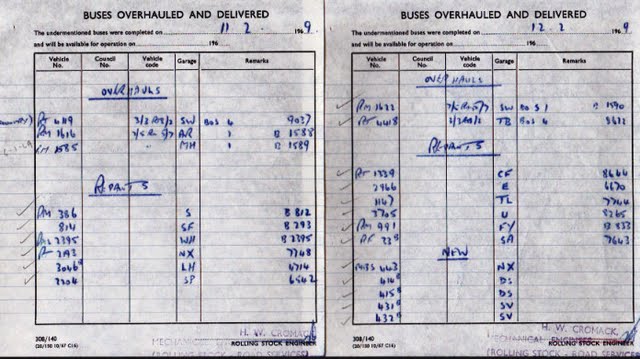 BUSES OVERHAULED AND DELIVERED
The undermentioned buses were completed on 11 . 2 . 196 9.
and will be available for operation on 196
Vehicle No. Council No. Vehicle code Garage Remarks
OVERHAULS
RT 4119 3/2 SW BOS 4 9027
RM 1616 AR 1 B 1588
RM 1585 " MH 1 B 1589
REPAINTS
RM 386 S B 812
814 SF B 293
WH B 2395
NX 7748
3046 LH 4714
2304 SP 6542
308/140
(20/150 10/67 C16)
H. W. CROMACK,
MECHANICAL ENGINEER
ROLLING STOCK ENGINEER
(ROLLING STOCK - ROAD SERVICES)
BUSES OVERHAULED AND DELIVERED
The undermentioned buses were completed on 12 . 2 196 9
and will be available for operation on 196
Vehicle No. Council No. Vehicle code Garage Remarks
OVERHAULS
RM 1622 SW BOS 1 B 1590
RT 4418 TB BOS 4
REPAINTS
RT 1339 CF 8664
2966 E 6670
1147 TL 7764
2705 U 8265
RM 991 FY B 833
RF SA 7643
NEW
MBS 443 NX
414 DS
415 DS
431 SV
432 SV
308/140
(20/150 10/67 C16)
H. W. CROMACK,
MECHANICAL ENGINEER
ROLLING STOCK ENGINEER
(ROLLING STOCK - ROAD SERVICES)